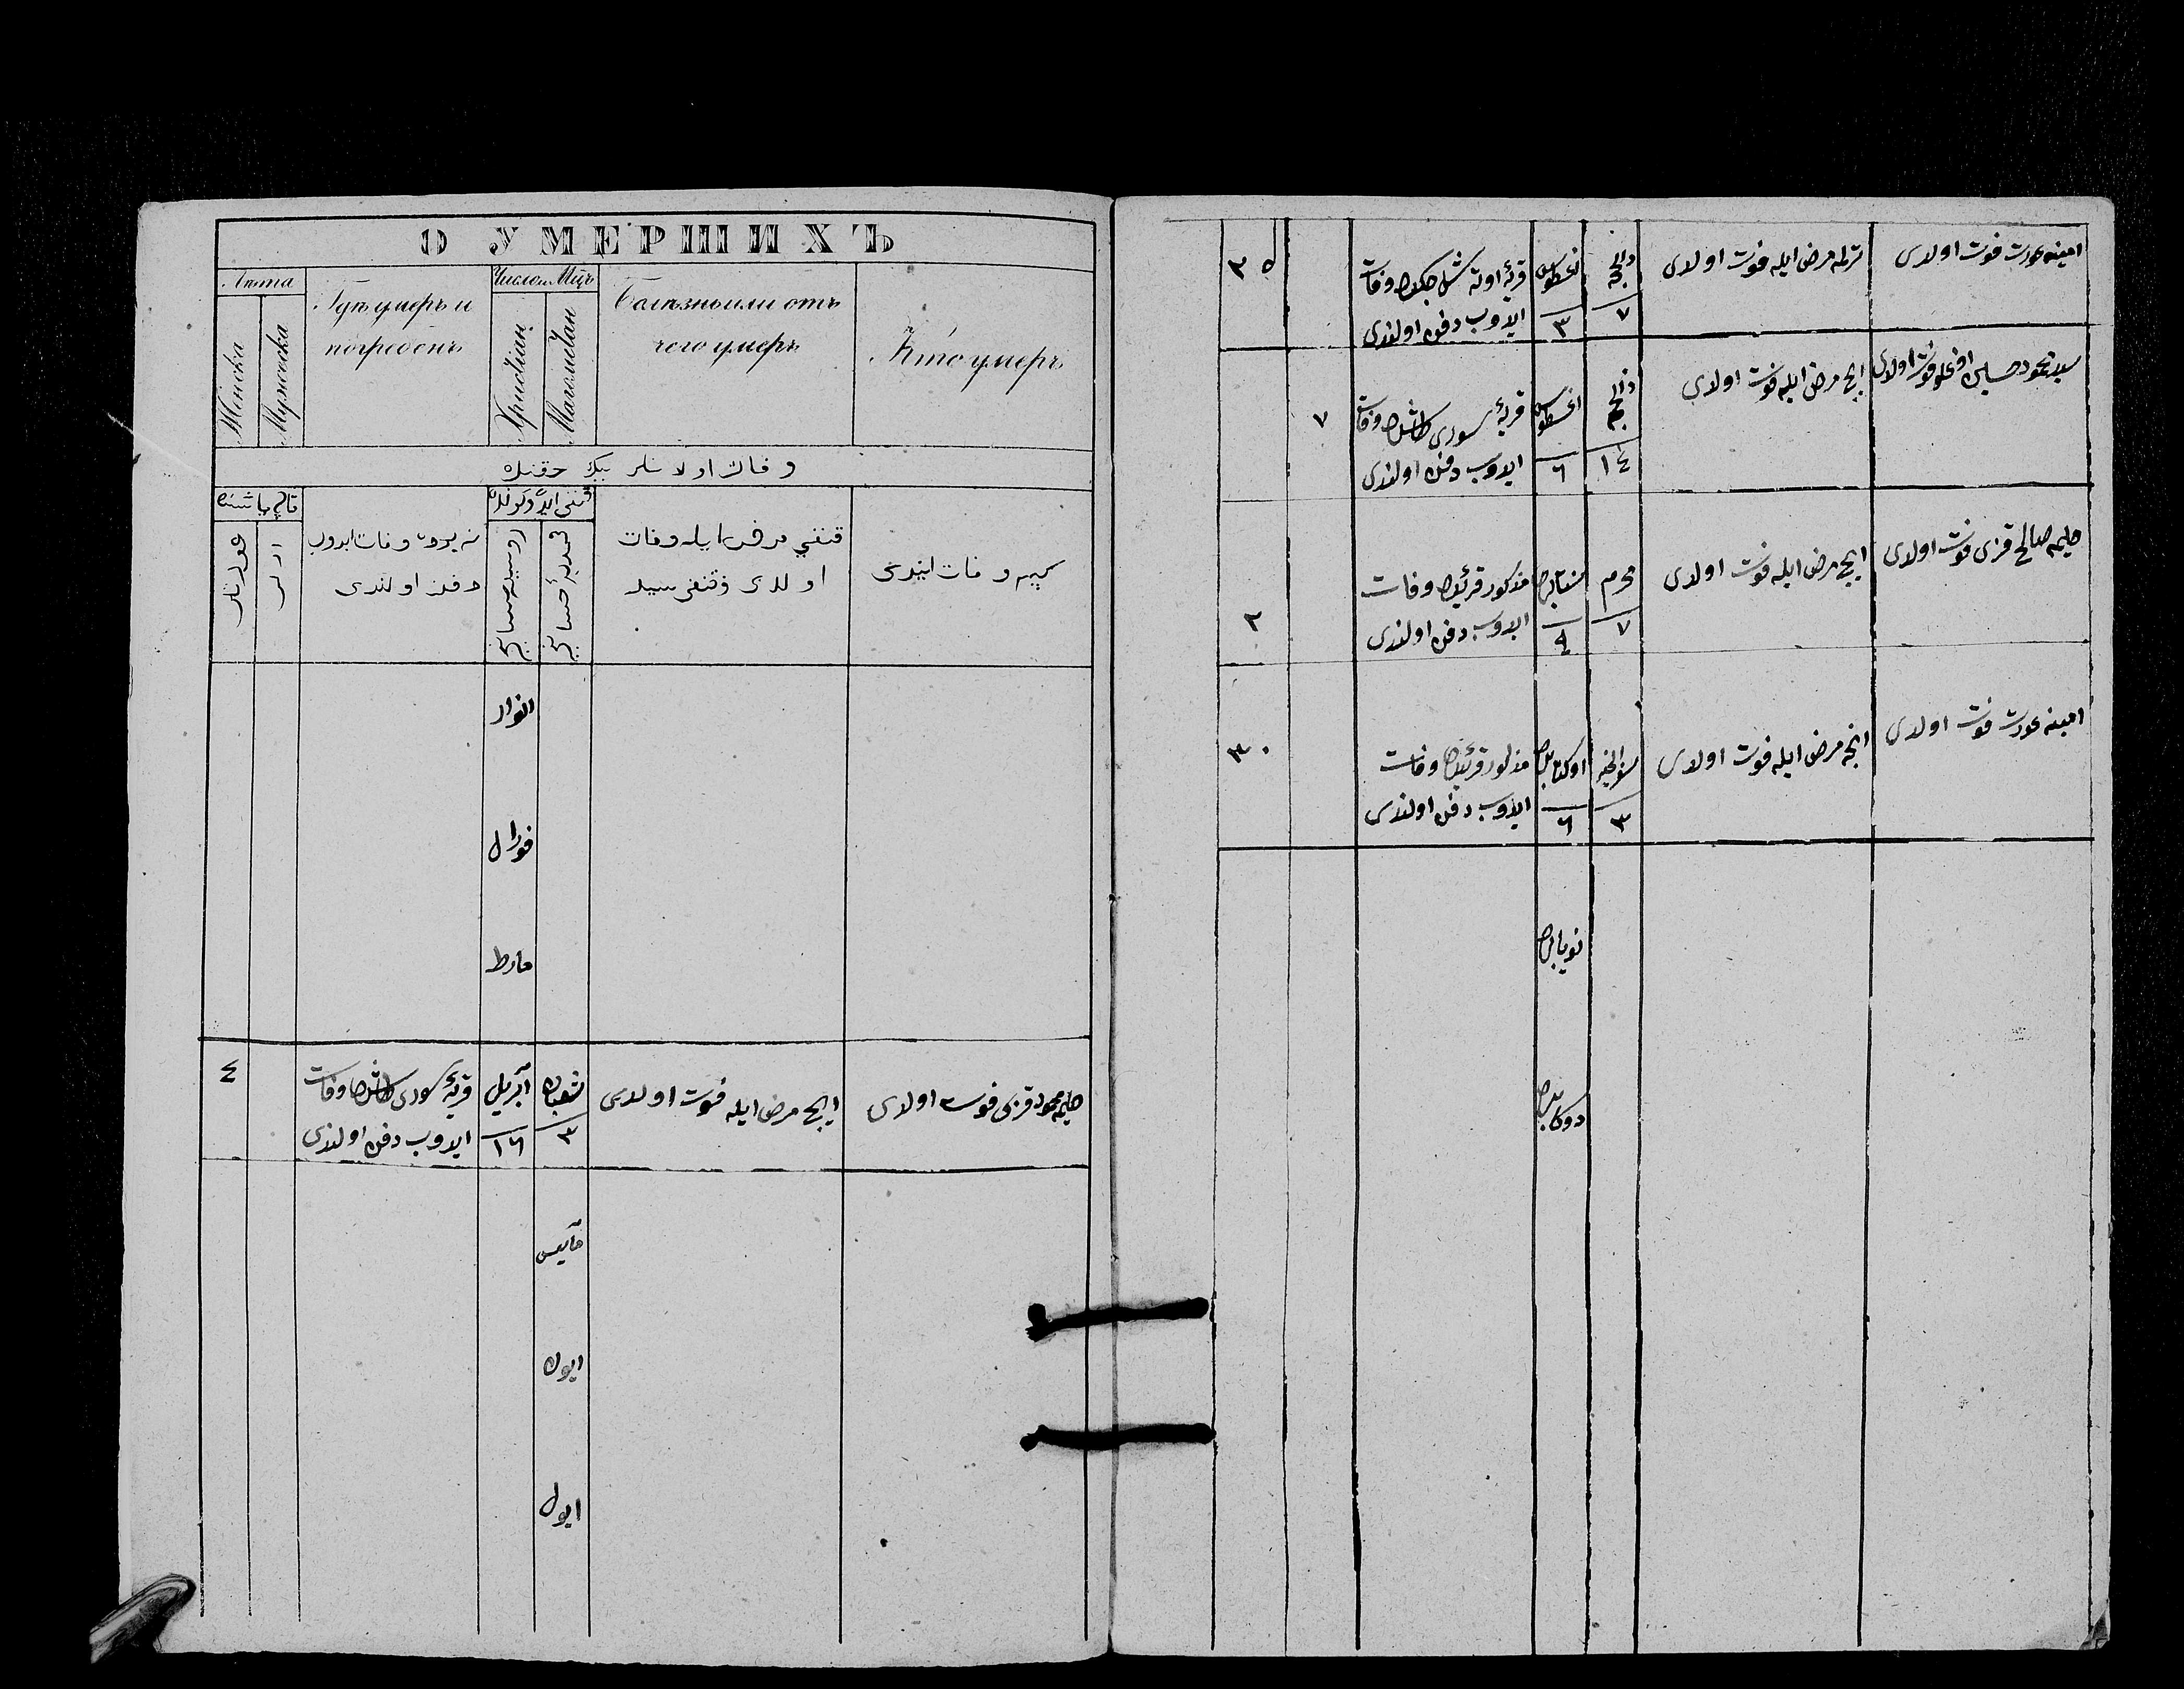 О УМЕРШИХЪ
Лѣта
Женска
Мужеска
Гдѣ умеръ и
погребенъ
Число и Мѣц.
Христіан.
Магометан
Болѣзнь или отъ
чего умеръ
Кто умеръ
وفات اولانلر بیك حقنده
قاچ یاشنده
عورتلر
ارلر
نه یرده وفات ایدوب
دفن اولندی
قنغی ایده و كونده
روسیه حسابی
محمدیه حسابی
قنغی مرض ایله وفات
اولدی
كیم وفات ایتدی
انوار
فورال
مارط
حلیمه محمود قزی فوت اولدی
ایچ مرض ایله فوت اولدی
شعبان ٣
آپریل ١٦
قریهٔ سوری طاشده وفات
ایدوب دفن اولندی
٤
مایس
ایون
ایول
امینه عورت فوت اولدی
مرض ایله فوت اولدی
ذالحجه ٧
اغسطوس ٣
قریهٔ اوته وفات
ایدوب دفن اولندی
٣٥
سید محمود حسین اوغلو فوت اولدی
ایچ مرض ایله فوت اولدی
ذالحجه ١٤
اغسطوس ٦
قریهٔ سوری طاشده وفات
ایدوب دفن اولندی
٧
حلیمه صالح قزی فوت اولدی
ایچ مرض ایله فوت اولدی
محرم ٧
سنتابر
مذكور قریه‌ده وفات
ایدوب دفن اولندی
٢
امینه عورت فوت اولدی
اینجه مرض ایله فوت اولدی
٣
اوكتابر ٦
مذكور قریه‌ده وفات
ایدوب دفن اولندی
٣٠
نویابر
دوكابر